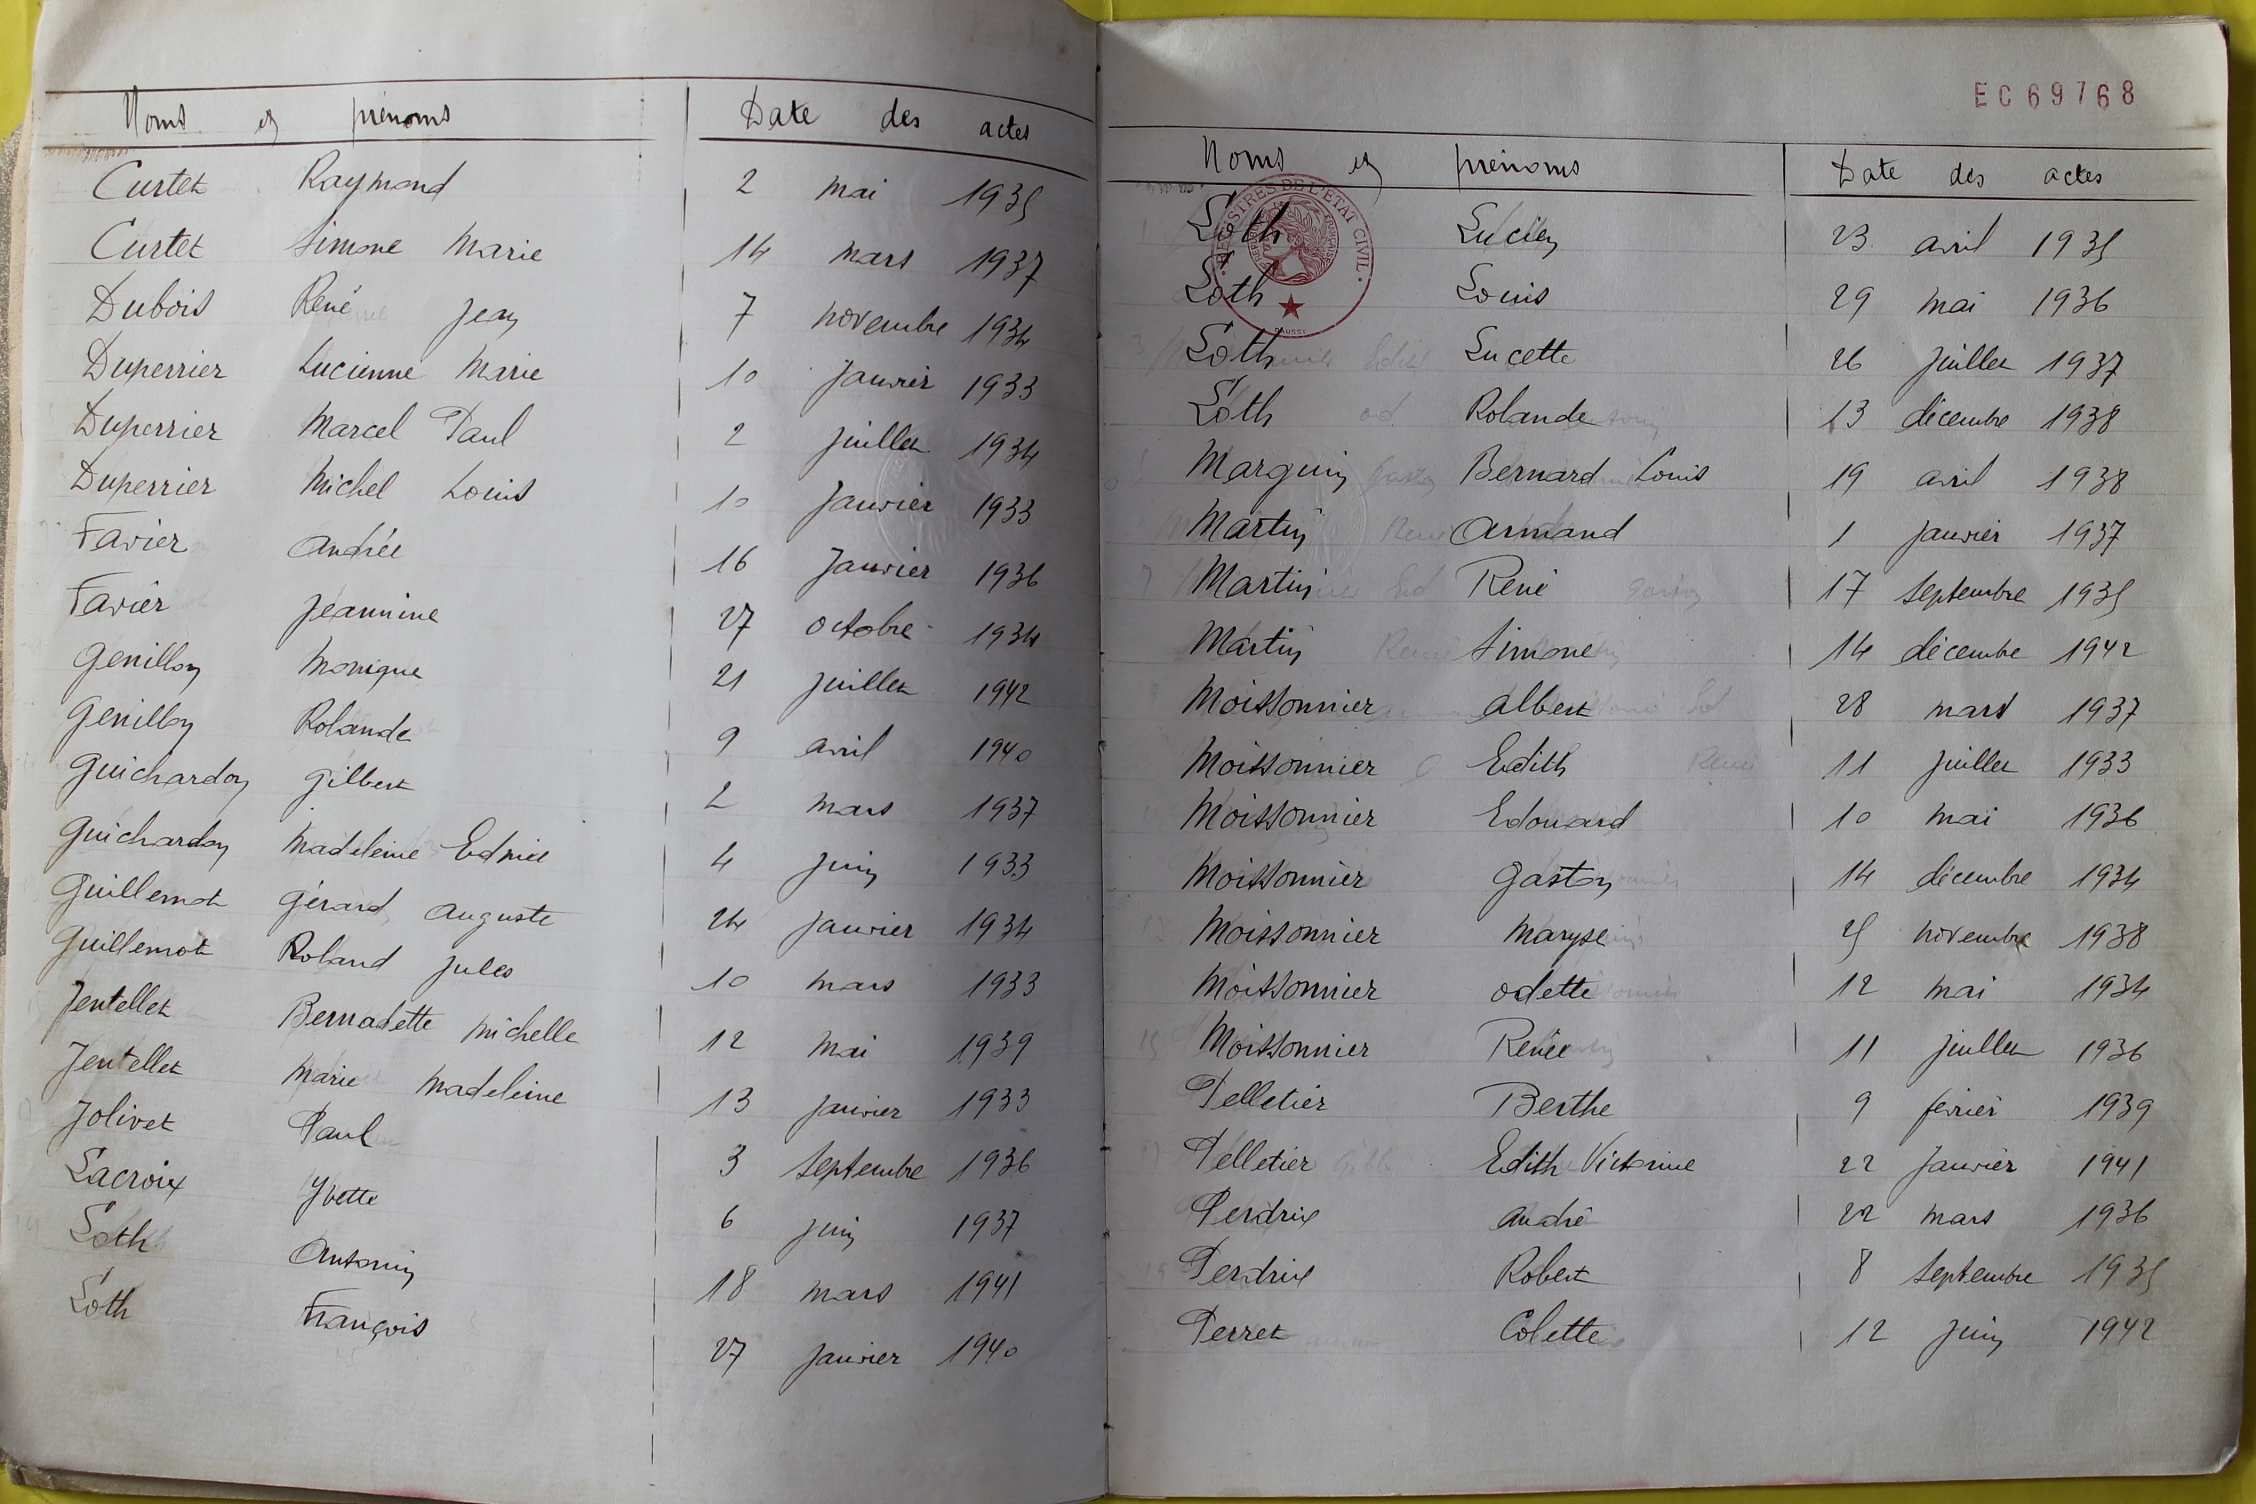 Noms et prénoms Date des actes
Curtet Raymond 2 mai 1935
Curtet Simone Marie 14 mars 1937
Dubois René Jean 7 novembre 1934
Duperrier Lucienne Marie 10 Janvier 1933
Duperrier Marcel Paul 2 juillet 1934
Duperrier Michel Louis 10 Janvier 1933
Favier Andrée 16 Janvier 1936
Favier Jeannine 27 octobre 1934
Genillon Monique 21 juillet 1942
Genillon Rolande 9 avril 1940
Guichardon Gilbert 2 mars 1937
Guichardon Madeleine Edmée 4 juin 1933
Guillemot Gérard Auguste 24 janvier 1934
Guillemot Roland Jules 10 mars 1933
Jentellet Bernadette Michelle 12 Mai 1939
Jentellet Marie Madeleine 13 janvier 1933
Jolivet Paul 3 septembre 1936
Lacroix Yvette 6 juin 1937
Loth Antonin 18 mars 1941
Loth François 27 janvier 1940
EC69768
Noms et prénoms Date des actes
REGISTRES DE L'ETAT CIVIL
Loth Lucien 23 avril 1935
Loth Louis 29 mai 1936
Loth Lucette 26 juillet 1937
Loth Rolande 13 décembre 1938
Marguin Bernard Louis 19 avril 1938
Martin Armand 1 janvier 1937
Martin René 17 septembre 1935
Martin Simone 14 décembre 1942
Moissonnier Albert 28 mars 1937
Moissonnier Edith 11 juillet 1933
Moissonnier Edouard 10 mai 1936
Moissonnier Gaston 14 décembre 1934
Moissonnier Maryse 25 novembre 1938
Moissonnier Odette 12 mai 1934
Moissonnier Renée 11 juillet 1936
Pelletier Berthe 9 février 1939
Pelletier Edith Victorine 22 Janvier 1941
Perdrix André 22 mars 1936
Perdrix Robert 8 septembre 1935
Perret Colette 12 juin 1942